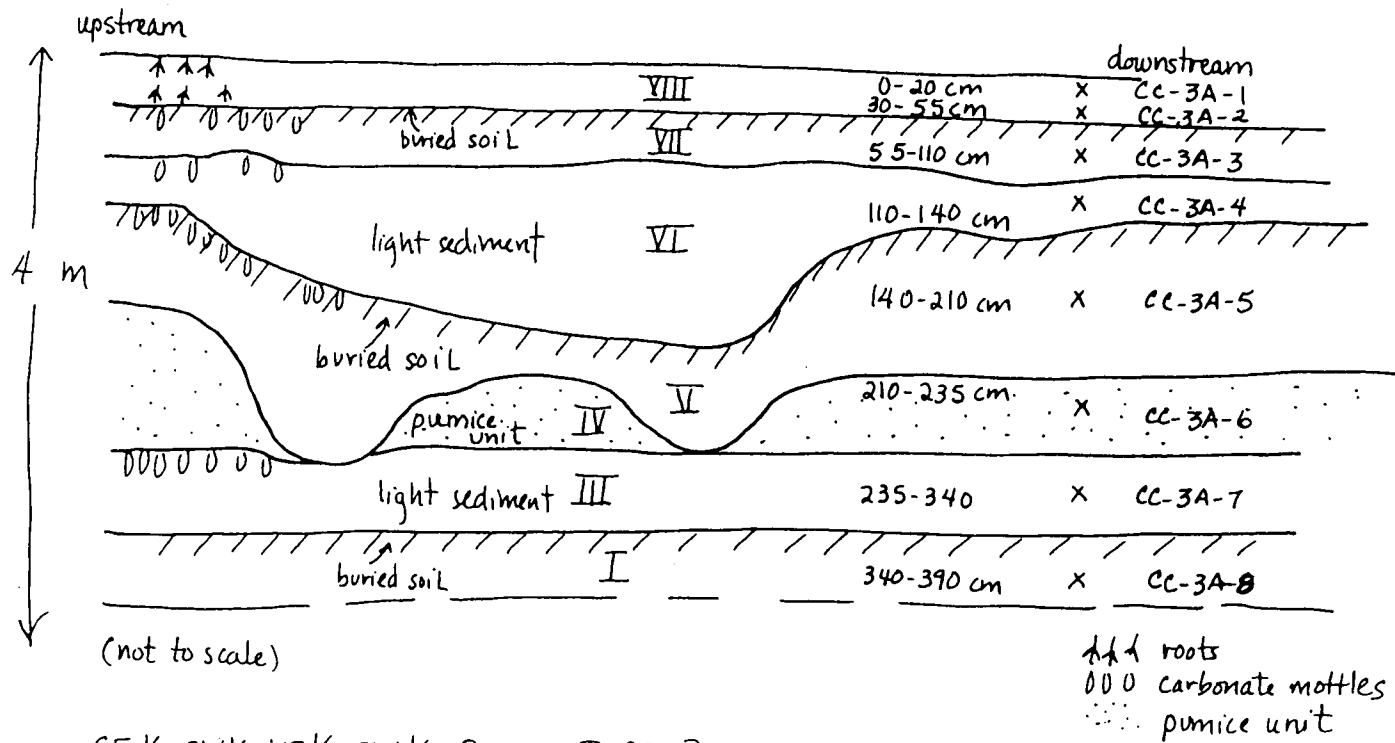 upstream
downstream
VIII 0-20 cm X CC-3A-1
30-55 cm X CC-3A-2
buried soil VII 55-110 cm X CC-3A-3
110-140 cm X CC-3A-4
light sediment VI
4 m
140-210 cm X CC-3A-5
buried soil
V 210-235 cm.
pumice unit IV X CC-3A-6
light sediment III 235-340 X CC-3A-7
buried soil I 340-390 cm X CC-3A-8
(not to scale)
roots
carbonate mottles
pumice unit